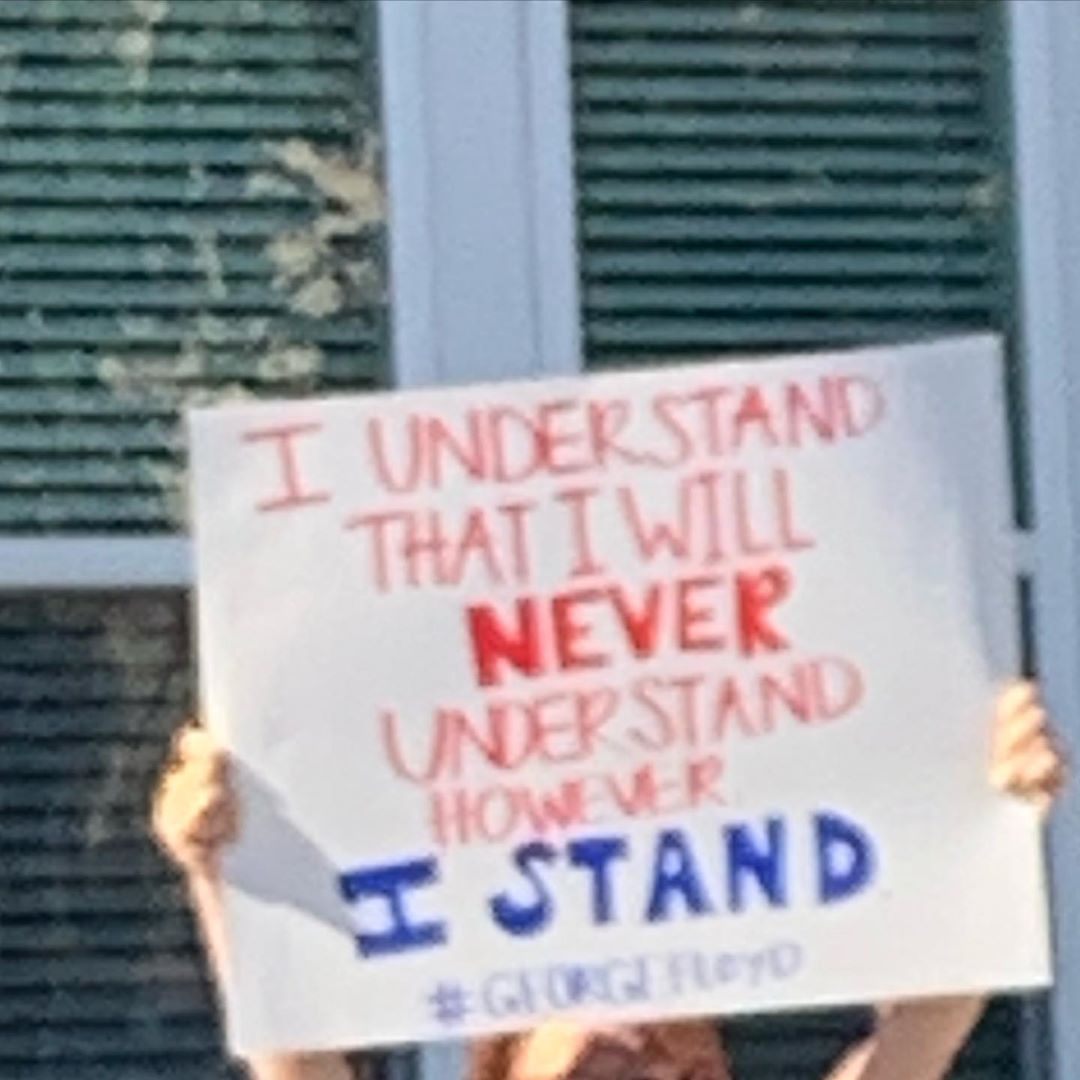 I UNDERSTAND
THAT I WILL
NEVER
UNDERSTAND
HOWEVER
I STAND
#GEORGEFLOYD